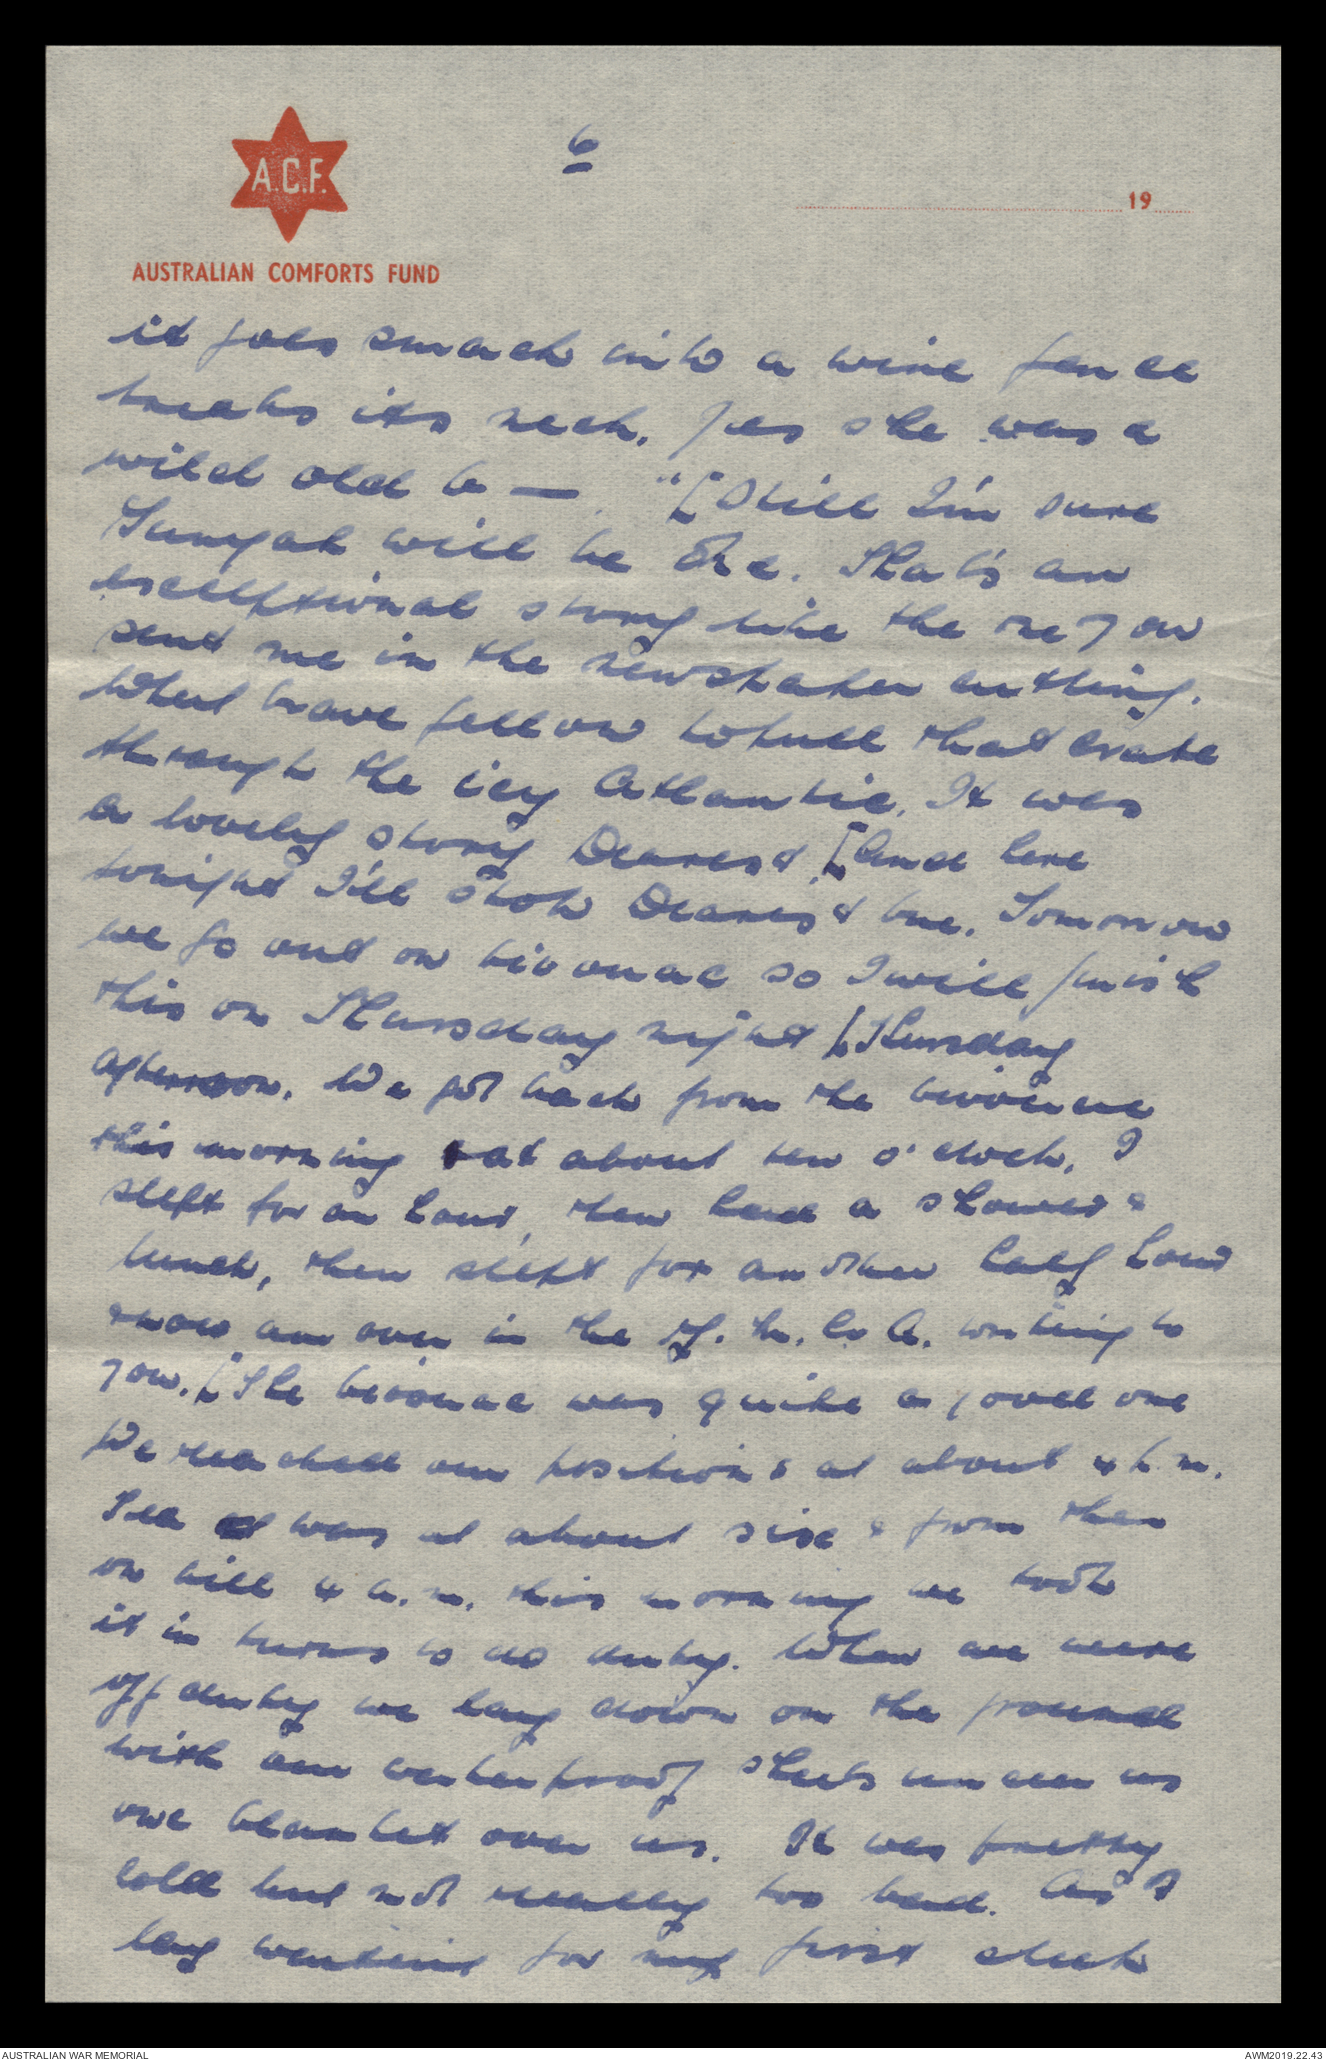 A.C.F.
AUSTRALIAN COMFORTS FUND
6
19
it goes smack into a wire fence
breaks its neck. Yes she was a
wild old b—." [Still I'm sure
Gunyah will be O.K. That's an
exceptional story like the one you
sent me in the newspaper cutting.
What brave fellow to pull that crate
through the icy Atlantic. It was
a lovely story Dearest. [And here
tonight I'll stop Dearest one. Tomorrow
we go out on bivouac so I will finish
this on Thursday night [Thursday
Afternoon. We got back from the bivouac
this morning at about ten o'clock, I
slept for an hour, then had a shower &
lunch, then slept for another half hour
& now am over in the Y.M.C.A. writing to
you. [The bivouac was quite a good one
We reached our positions at about 4 p.m.
Tea was at about six & from then
on till 4 a.m. this morning we took
it in turns to do duty. When we were
off duty we lay down on the ground
with our waterproof sheets under us
one blanket over us. It was pretty
cold but not really too bad. As I
lay waiting for my first
AUSTRALIAN WAR MEMORIAL
AWM2019.22.43